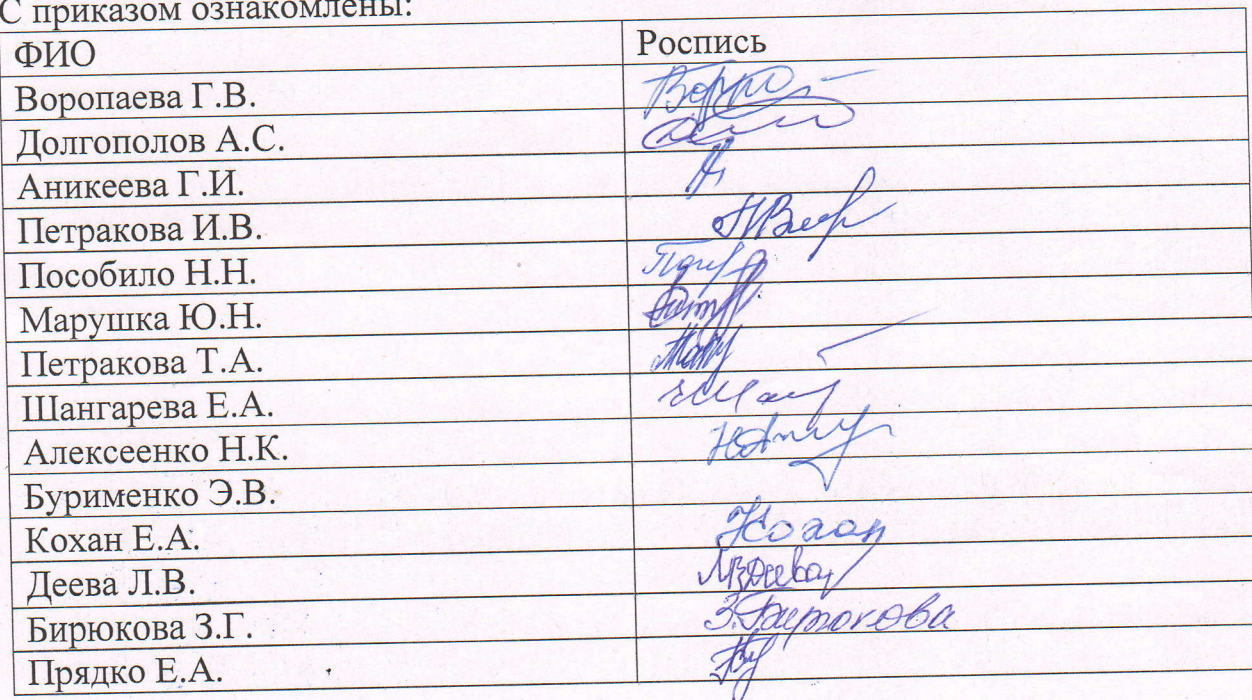 С приказом ознакомлены:
ФИО Роспись
Воропаева Г.В.
Долгополов А.С.
Аникеева Г.И.
Петракова И.В.
Пособило Н.Н.
Марушка Ю.Н.
Петракова Т.А.
Шангарева Е.А.
Алексеенко Н.К.
Буримeнко Э.В.
Кохан Е.А. Кохан
Деева Л.В. ЛВДеева
Бирюкова З.Г. З.Бирюкова
Прядко Е.А.